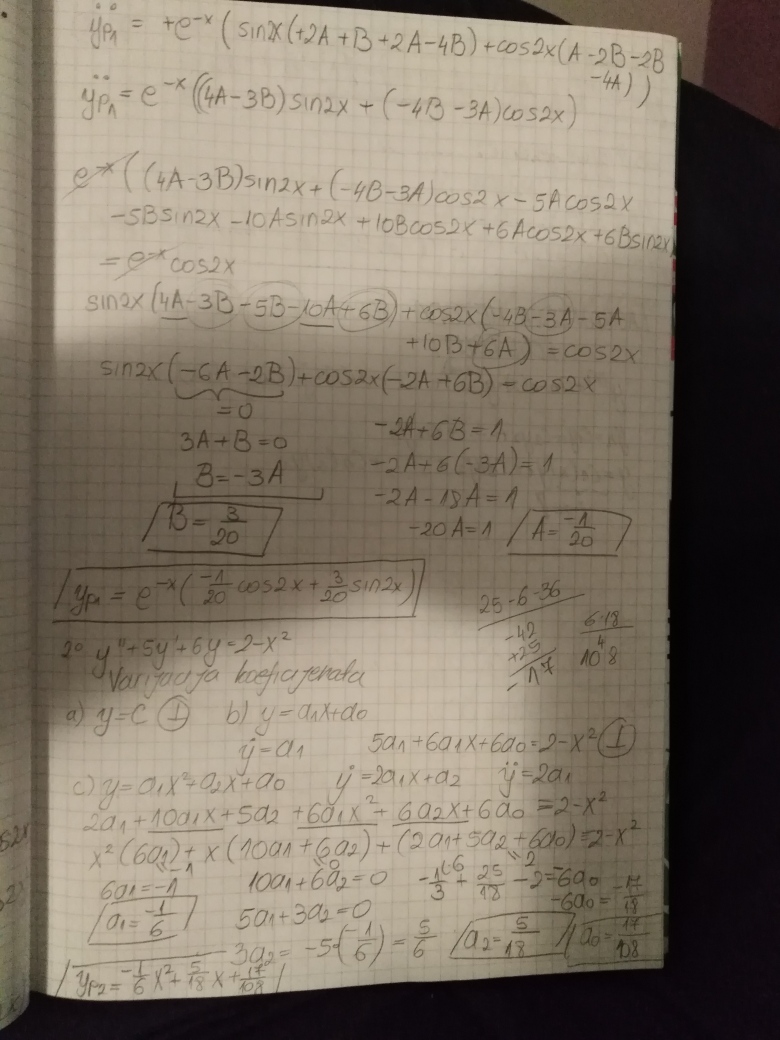 ÿp₁ = +e^-x (sin2x(+2A+B+2A-4B)+cos2x(A-2B-2B
-4A))
ÿp₁ = e^-x((4A-3B)sin2x + (-4B-3A)cos2x)
e^-x((4A-3B)sin2x+(-4B-3A)cos2x-5Acos2x
-5Bsin2x-10Asin2x+10Bcos2x+6Acos2x+6Bsin2x)
= e^-x cos2x
sin2x(4A-3B-5B-10A+6B)+cos2x(-4B-3A-5A
+10B+6A) = cos2x
sin2x(-6A-2B)+cos2x(-2A+6B)=cos2x
=0
3A+B=0 -2A+6B=1
B=-3A -2A+6(-3A)=1
-2A-18A=1
B=3/20 -20A=1 A=-1/20
yp₁ = e^-x(-1/20 cos2x + 3/20 sin2x)
25-6-36
-42
+25
-17
6·18
4
108
2° y''+5y'+6y=2-x²
Varijacija koeficijenata
a) y=C ⊥ b) y=a₁x+a₀
ẏ=a₁ 5a₁+6a₁x+6a₀=2-x² ⊥
c) y=a₁x²+a₂x+a₀ ẏ=2a₁x+a₂ ÿ=2a₁
2a₁+10a₁x+5a₂+6a₁x²+6a₂x+6a₀=2-x²
x²(6a₁)+x(10a₁+6a₂)+(2a₁+5a₂+6a₀)=2-x²
=-1 =0 =2
6a₁=-1 10a₁+6a₂=0 -1/3+25/18-2=-6a₀
-6a₀=-17/18
a₁=-1/6 5a₁+3a₂=0
3a₂=-5·(-1/6)=5/6 a₂=5/18 a₀=17/108
yp₂=-1/6x²+5/18x+17/108